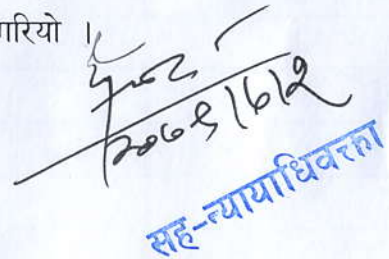 गरियो ।
२०७९।७।२
सह-न्यायाधिवक्ता